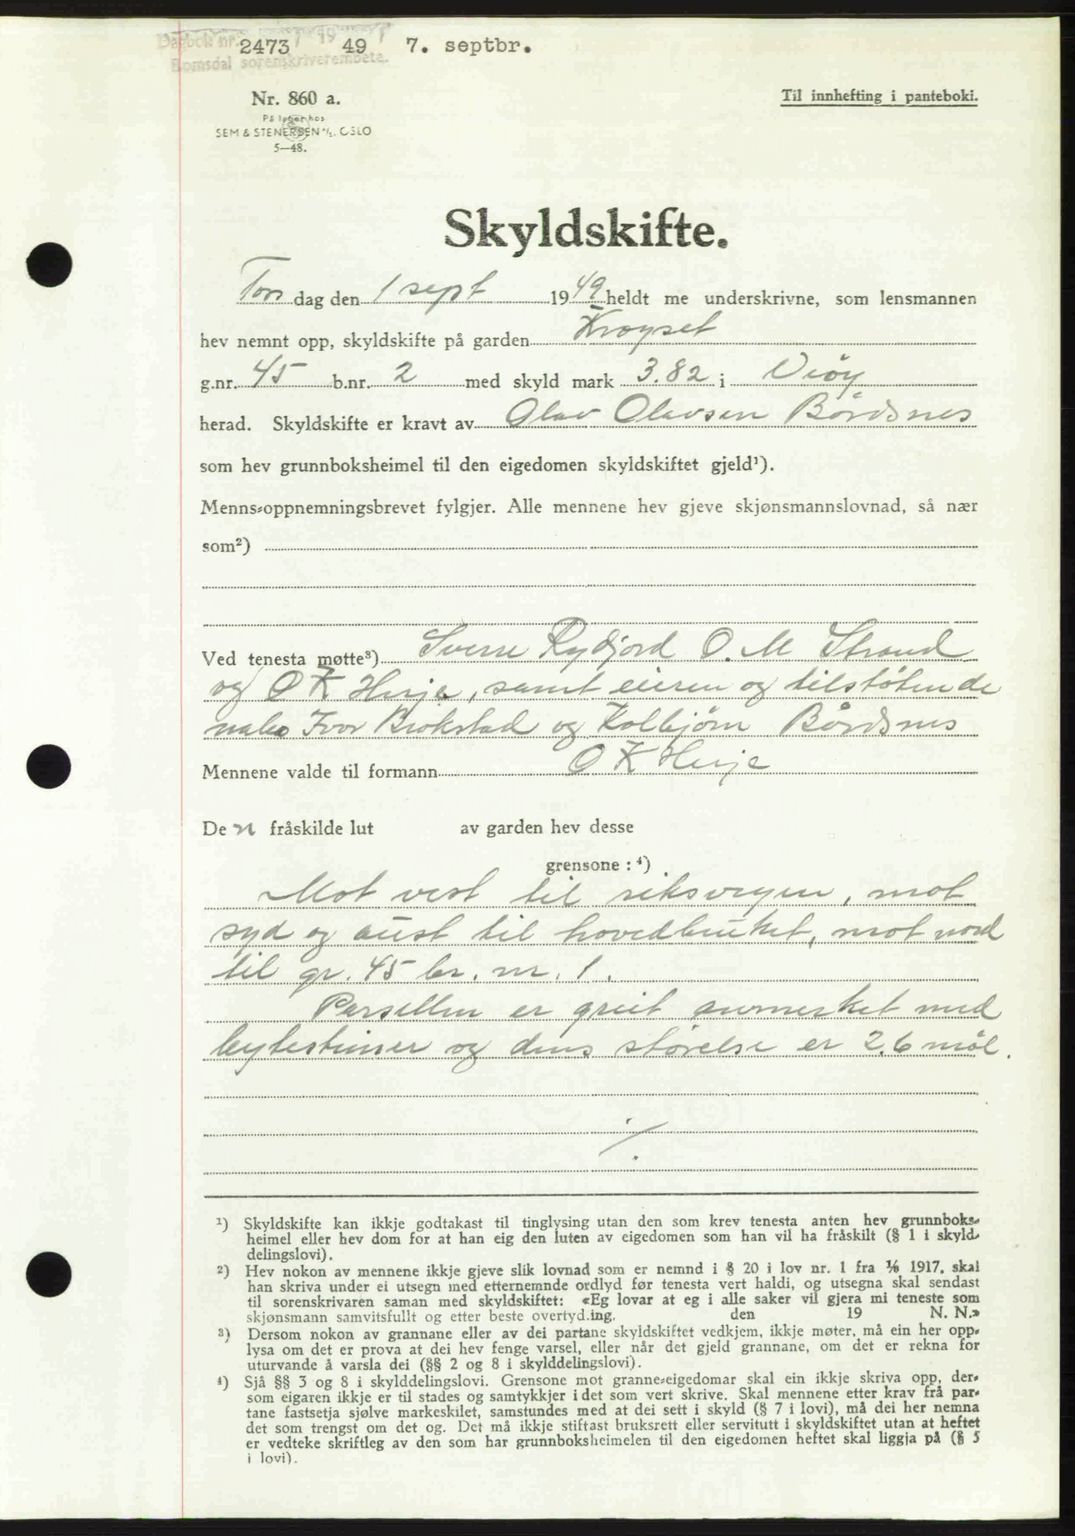 Dagbok nr. 2473 1949 7. septbr.
Romsdal sorenskriverembete.
Nr. 860 a.
På lager hos
SEM & STENERSEN A/S. OSLO
5—48.
Til innhefting i panteboki.
Skyldskifte.
Tors dag den 1 sept 1949 heldt me underskrivne, som lensmannen
hev nemnt opp, skyldskifte på garden Krogset
g.nr. 45 b.nr. 2 med skyld mark 3.82 i Veøy
herad. Skyldskifte er kravt av Olav Olavsen Bårdsnes
som hev grunnboksheimel til den eigedomen skyldskiftet gjeld¹).
Menns-oppnemningsbrevet fylgjer. Alle mennene hev gjeve skjønsmannslovnad, så nær
som²)
Ved tenesta møtte³) Sverre Rydjord O. M Strand
og O K Herje, samt eieren og tilstøtende
nabo Ivor Brokstad og Kolbjørn Bårdsnes
Mennene valde til formann O K Herje
De n fråskilde lut av garden hev desse
grensone : ⁴)
Mot vest til riksvegen, mot
syd og aust til hovedbruket, mot nord
til gr. 45 br. nr. 1.
Parsellen er greit avmerket med
bytesteiner og dens størelse er 2.6 mål.
./.
¹) Skyldskifte kan ikkje godtakast til tinglysing utan den som krev tenesta anten hev grunnboks-
heimel eller hev dom for at han eig den luten av eigedomen som han vil ha fråskilt (§ 1 i skyld-
delingslovi).
²) Hev nokon av mennene ikkje gjeve slik lovnad som er nemnd i § 20 i lov nr. 1 fra 1/6 1917, skal
han skriva under ei utsegn med etternemnde ordlyd før tenesta vert haldi, og utsegna skal sendast
til sorenskrivaren saman med skyldskiftet: «Eg lovar at eg i alle saker vil gjera mi teneste som
skjønsmann samvitsfullt og etter beste overtyding. den 19 N. N.»
³) Dersom nokon av grannane eller av dei partane skyldskiftet vedkjem, ikkje møter, må ein her opp-
lysa om det er prova at dei hev fenge varsel, eller når det gjeld grannane, om det er rekna for
uturvande å varsla dei (§§ 2 og 8 i skylddelingslovi).
⁴) Sjå §§ 3 og 8 i skylddelingslovi. Grensone mot granne-eigedomar skal ein ikkje skriva opp, der-
som eigaren ikkje er til stades og samtykkjer i det som vert skrive. Skal mennene etter krav frå par-
tane fastsetja sjølve markeskilet, samstundes med at dei sett i skyld (§ 7 i lovi), må dei her nemna
det som trengst om det og. Det må ikkje stiftast bruksrett eller servitutt i skyldskiftet utan at heftet
er vedteke skriftleg av den som har grunnboksheimelen til den eigedomen heftet skal liggja på (§ 5
i lovi).